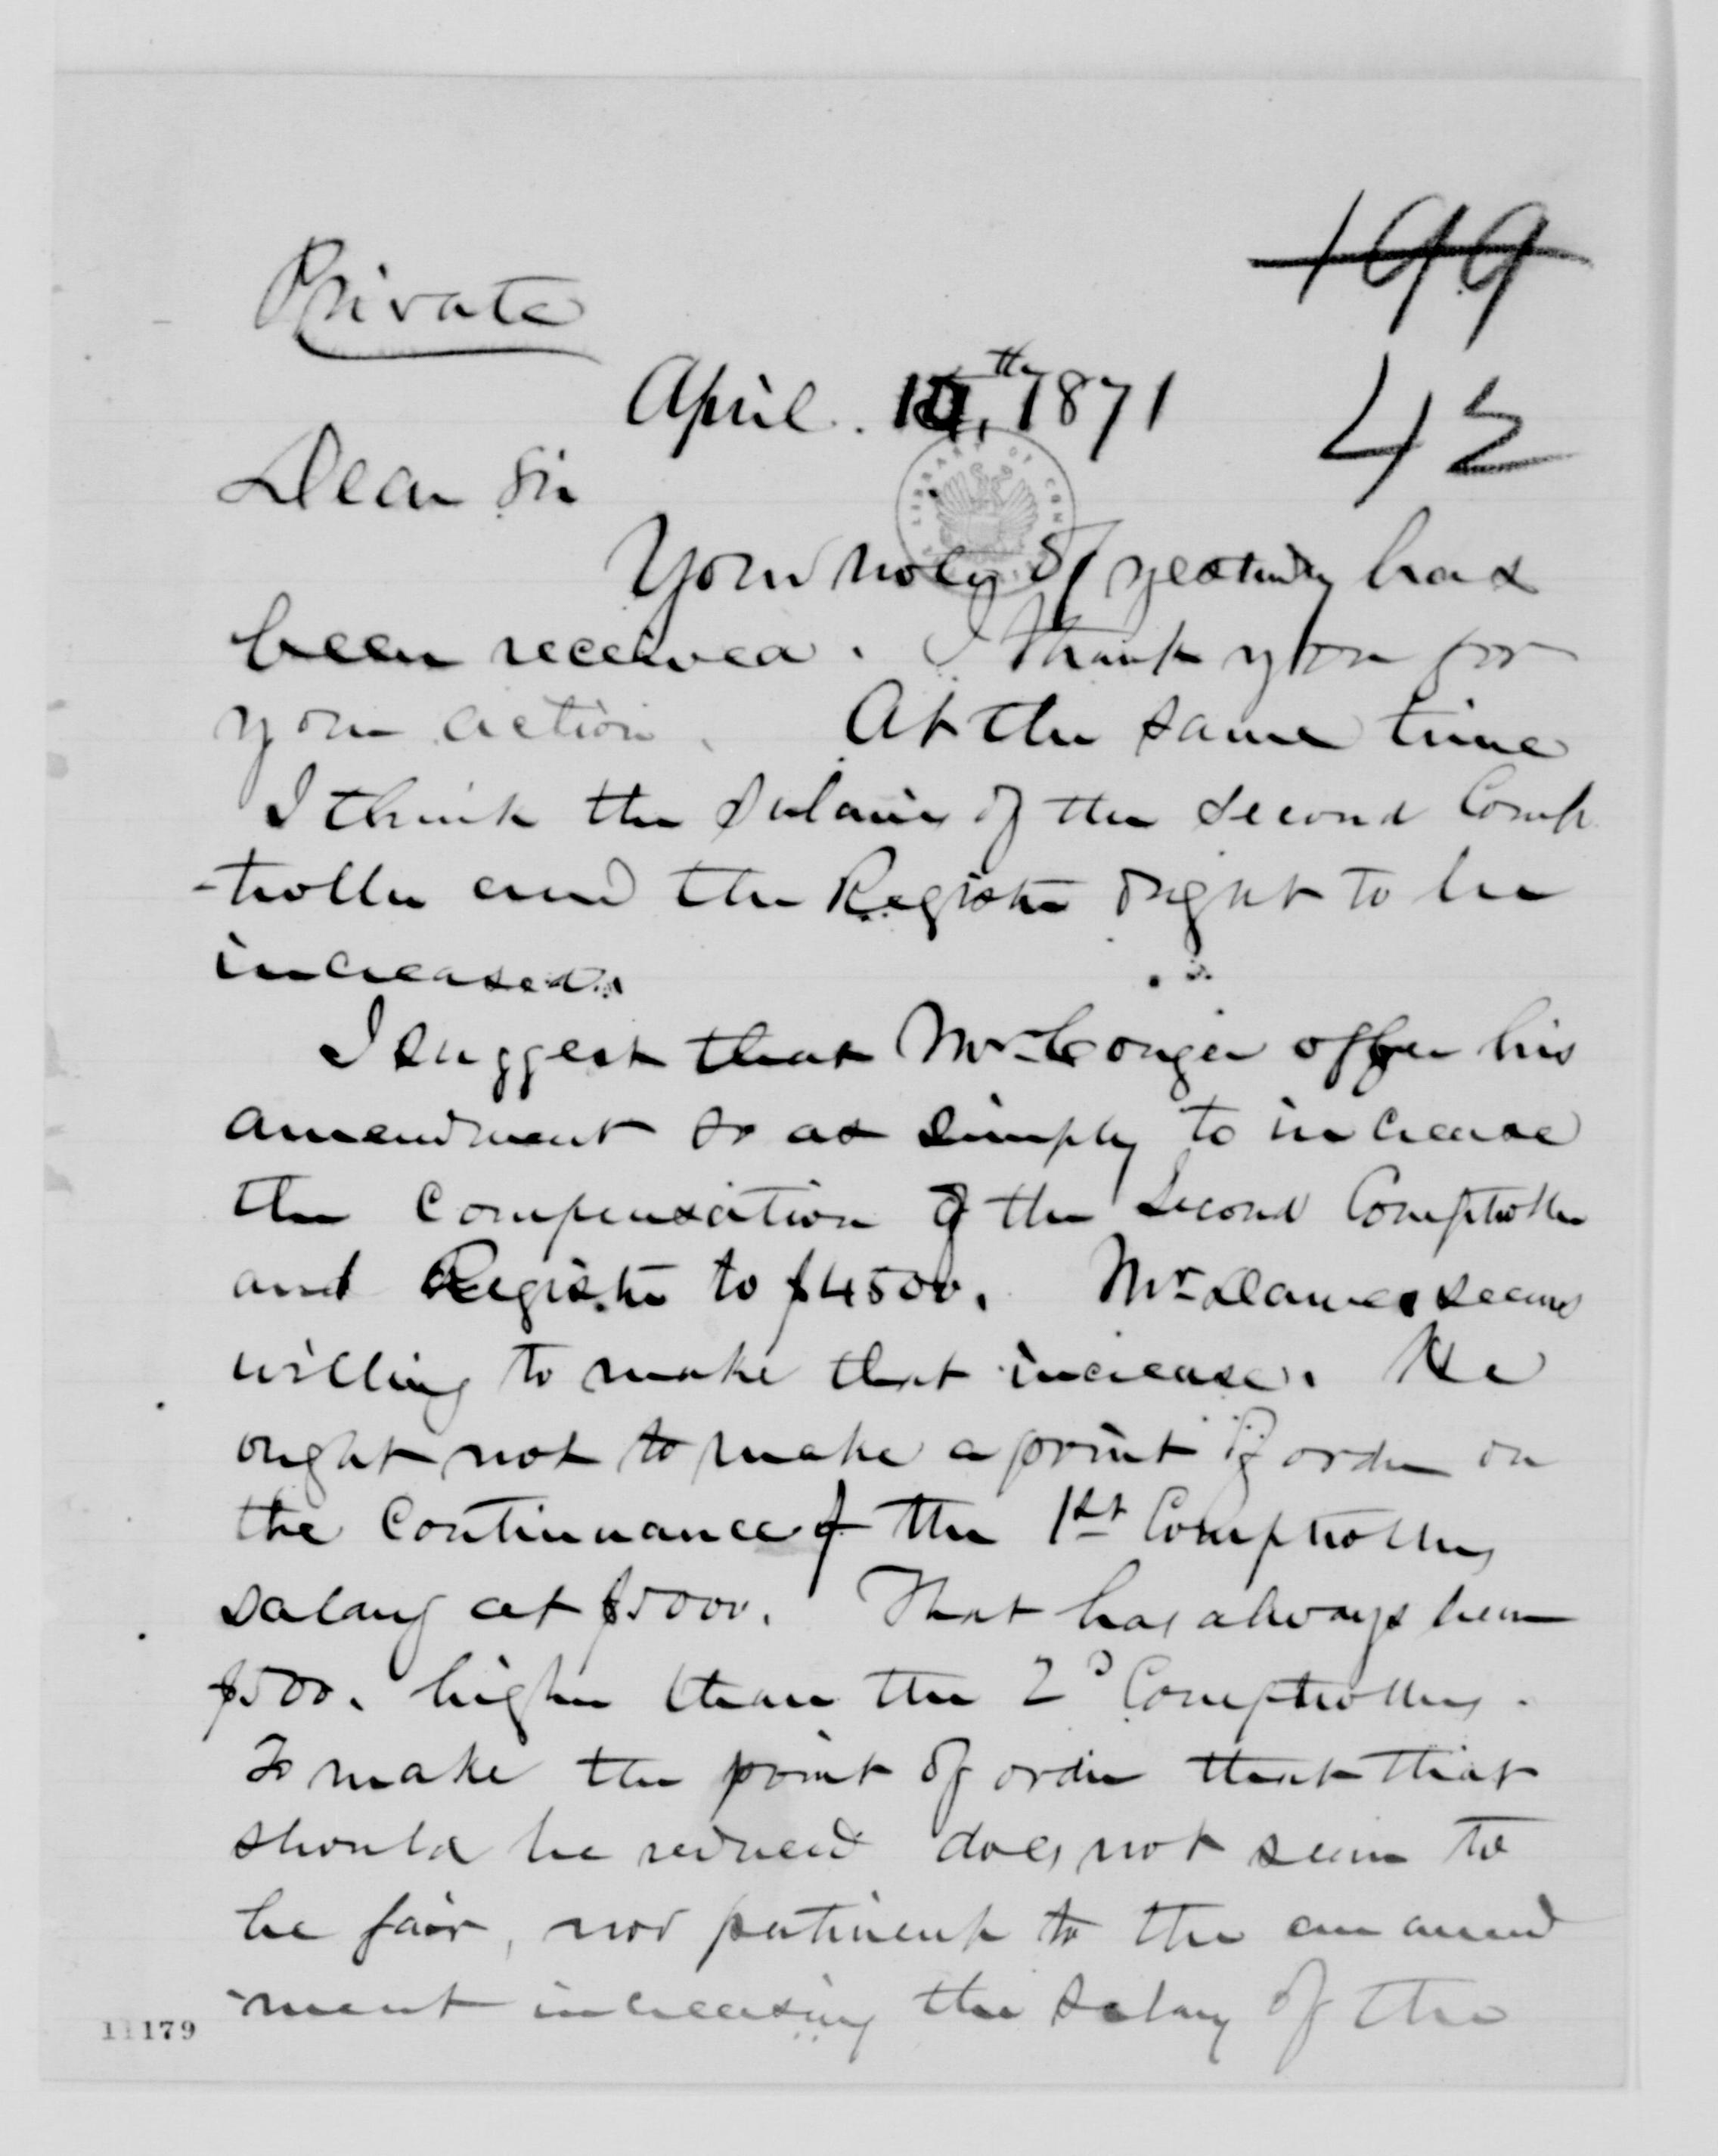 199
Private
April. 14th, 1871
42
Dear Sir
LIBRARY OF CON
Your note of yesterday has
been received. I thank you for
your action. At the same time
I think the salaries of the Second Comp
-troller and the Register ought to be
increased.
I suggest that Mr Conger offer his
amendment so as simply to increase
the compensation of the Second Comptroller
and Register to $4500. Mr Dawes seems
willing to make that increase. He
ought not to make a point of order on
the continuance of the 1st Comptrollers
salary at $5000. That has always been
$500. higher than the 2d Comptrollers.
To make the point of order that that
should be reduced does not seem to
be fair, nor pertinent to the an amend
-ment increasing the salary of the
11179